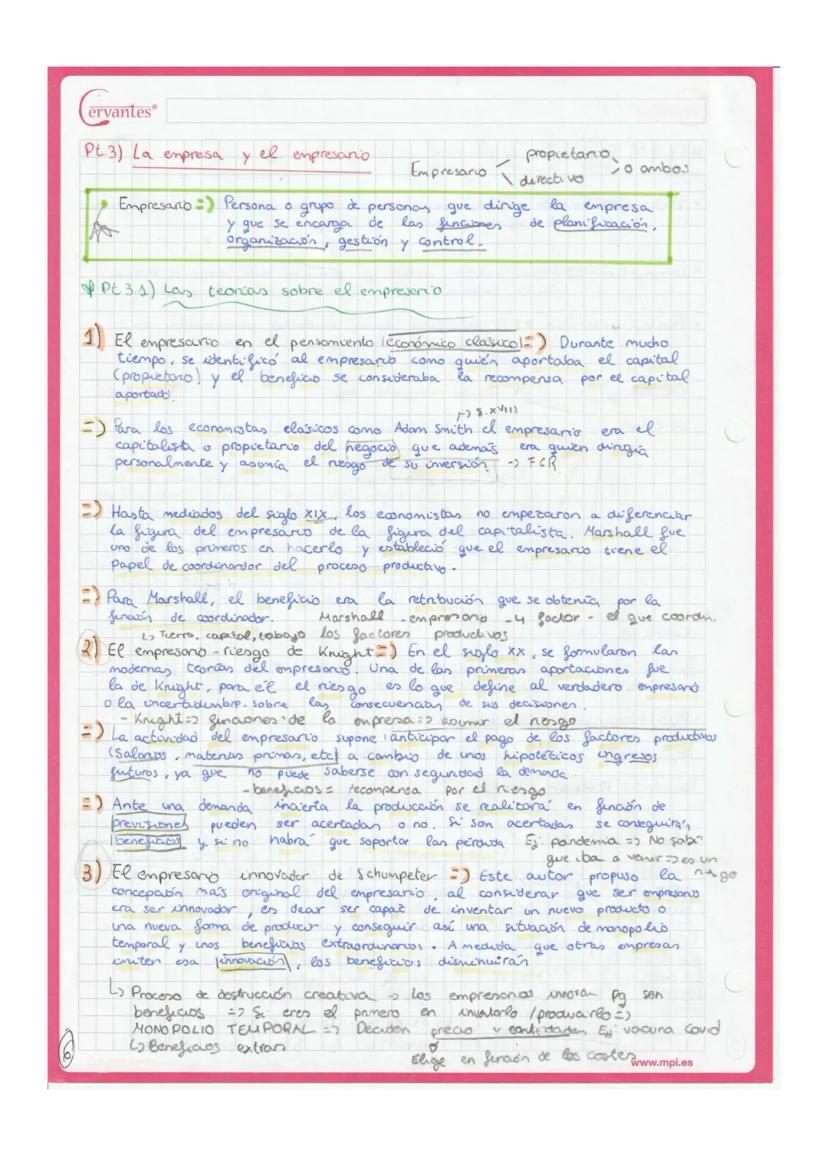 Cervantes®
Pt.3) La empresa y el empresario
Empresario propietario o ambos
directivo
Empresario => Persona o grupo de personas que dirige la empresa
y que se encarga de las funciones de planificación,
organización, gestión y control.
Pt 3.1) Las teorías sobre el empresario
1) El empresario en el pensamiento económico clásico => Durante mucho
tiempo, se identificó al empresario como quién aportaba el capital
(propietario) y el beneficio se consideraba la recompensa por el capital
aportado.
-> S.XVIII
=> Para los economistas clásicos como Adam Smith el empresario era el
capitalista o propietario del negocio que además era quien dirigía
personalmente y asumía el riesgo de su inversión. -> FCR
=> Hasta mediados del siglo XIX, los economistas no empezaron a diferenciar
la figura del empresario de la figura del capitalista. Marshall fue
uno de los primeros en hacerlo y estableció que el empresario tiene el
papel de coordinador del proceso productivo.
=> Para Marshall, el beneficio era la retribución que se obtenía por la
función de coordinador. Marshall - empresario - 4 factor - el que coordin.
↳ Tierra, capital, trabajo los factores productivos
2) El empresario - riesgo de Knight => En el siglo XX, se formularon las
modernas teorías del empresario. Una de las primeras aportaciones fue
la de Knight, para él el riesgo es lo que define al verdadero empresario
o la incertidumbre sobre las consecuencias de sus decisiones.
- Knight => funciones de la empresa => asumir el riesgo
=> La actividad del empresario supone anticipar el pago de los factores productivos
(Salarios, materias primas, etc) a cambio de unos hipotéticos ingresos
futuros, ya que no puede saberse con seguridad la demanda.
- beneficios = recompensa por el riesgo
=> Ante una demanda incierta la producción se realizará en función de
previsiones pueden ser acertadas o no. Si son acertadas se conseguirán
beneficios y si no habrá que soportar las pérdida Ej: pandemia => No sabí
que iba a venir => es un
riesgo
3) El empresario innovador de Schumpeter => Este autor propuso la
concepción más original del empresario, al considerar que ser empresario
era ser innovador, es decir ser capaz de inventar un nuevo producto o
una nueva forma de producir y conseguir así una situación de monopolio
temporal y unos beneficios extraordinarios. A medida que otras empresas
imiten esa innovación, los beneficios disminuirán
↳ Proceso de destrucción creativa -> Los empresarios innovan Pq son
beneficios => Si eres el primero en inventarlo /producirlo =>
MONOPOLIO TEMPORAL => Deciden precio y cantidades Ej: vacuna Covid
↳ Beneficios extras
Elige en función de los costes
www.mpi.es
6